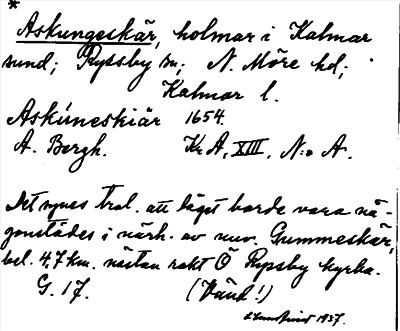 *
Askungeskär, holmar i Kalmar
sund; Ryssby sn; N. Möre hd;
Kalmar l.
Askúneskiär 1654.
A. Bergh. Kr A, XIII, N:o A.
Det synes trol. att läget borde vara nå-
gonstädes i närh. av nuv. Gummeskär,
bel. 4,7 km. nästan rakt Ö Ryssby kyrka.
G. 17. (Vänd!)
1937.